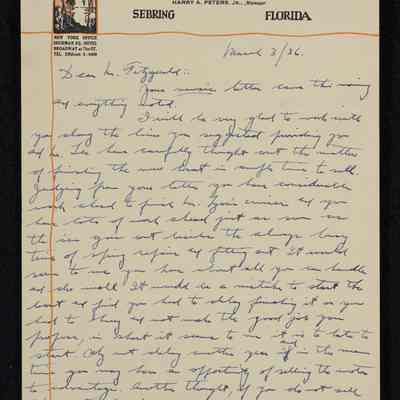 HARRY A. PETERS, JR., Manager
SEBRING FLORIDA
NEW YORK OFFICE
BEEKMAN SQ. HOTEL
BROADWAY at 71st ST.
March 3/36.
Dear Mr. Fitzgerald:
Your letter came this morning
and everything noted.
I will be very glad to work with
you along the lines you suggested providing you
and Mr. Lee have carefully thought out the matter
of finishing the new boat in ample time to sell.
Judging from your letter you have considerable
work ahead to finish Mr. cruiser and you
have lots of work ahead just as soon as
the ice goes out besides the always busy
time of spring repairs and fitting out. It would
seem to me you have about all you can handle
and do well. It would be a mistake to start the
boat and find you had to delay finishing it or you
had to and not make the good job you
propose, in short it seems to me it is to late to
start. Why not delay another year and in the mean
time you may have an opportunity of selling the
to advantage. Another thought, if you do not sell